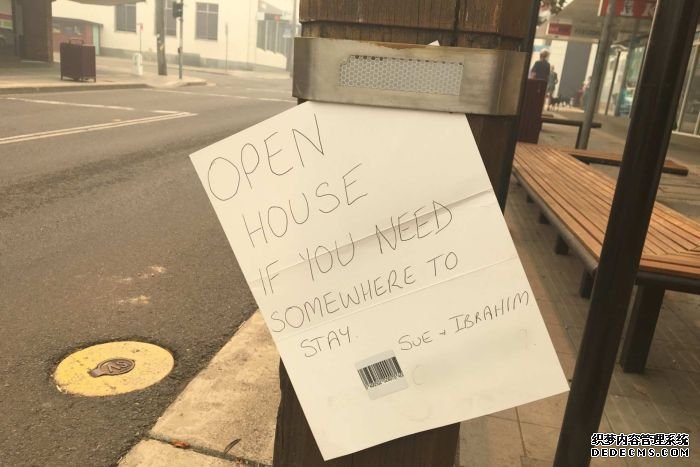 OPEN
HOUSE
IF YOU NEED
SOMEWHERE TO
STAY. SUE + IBRAHIM
织梦内容管理系统
DEDECMS.COM